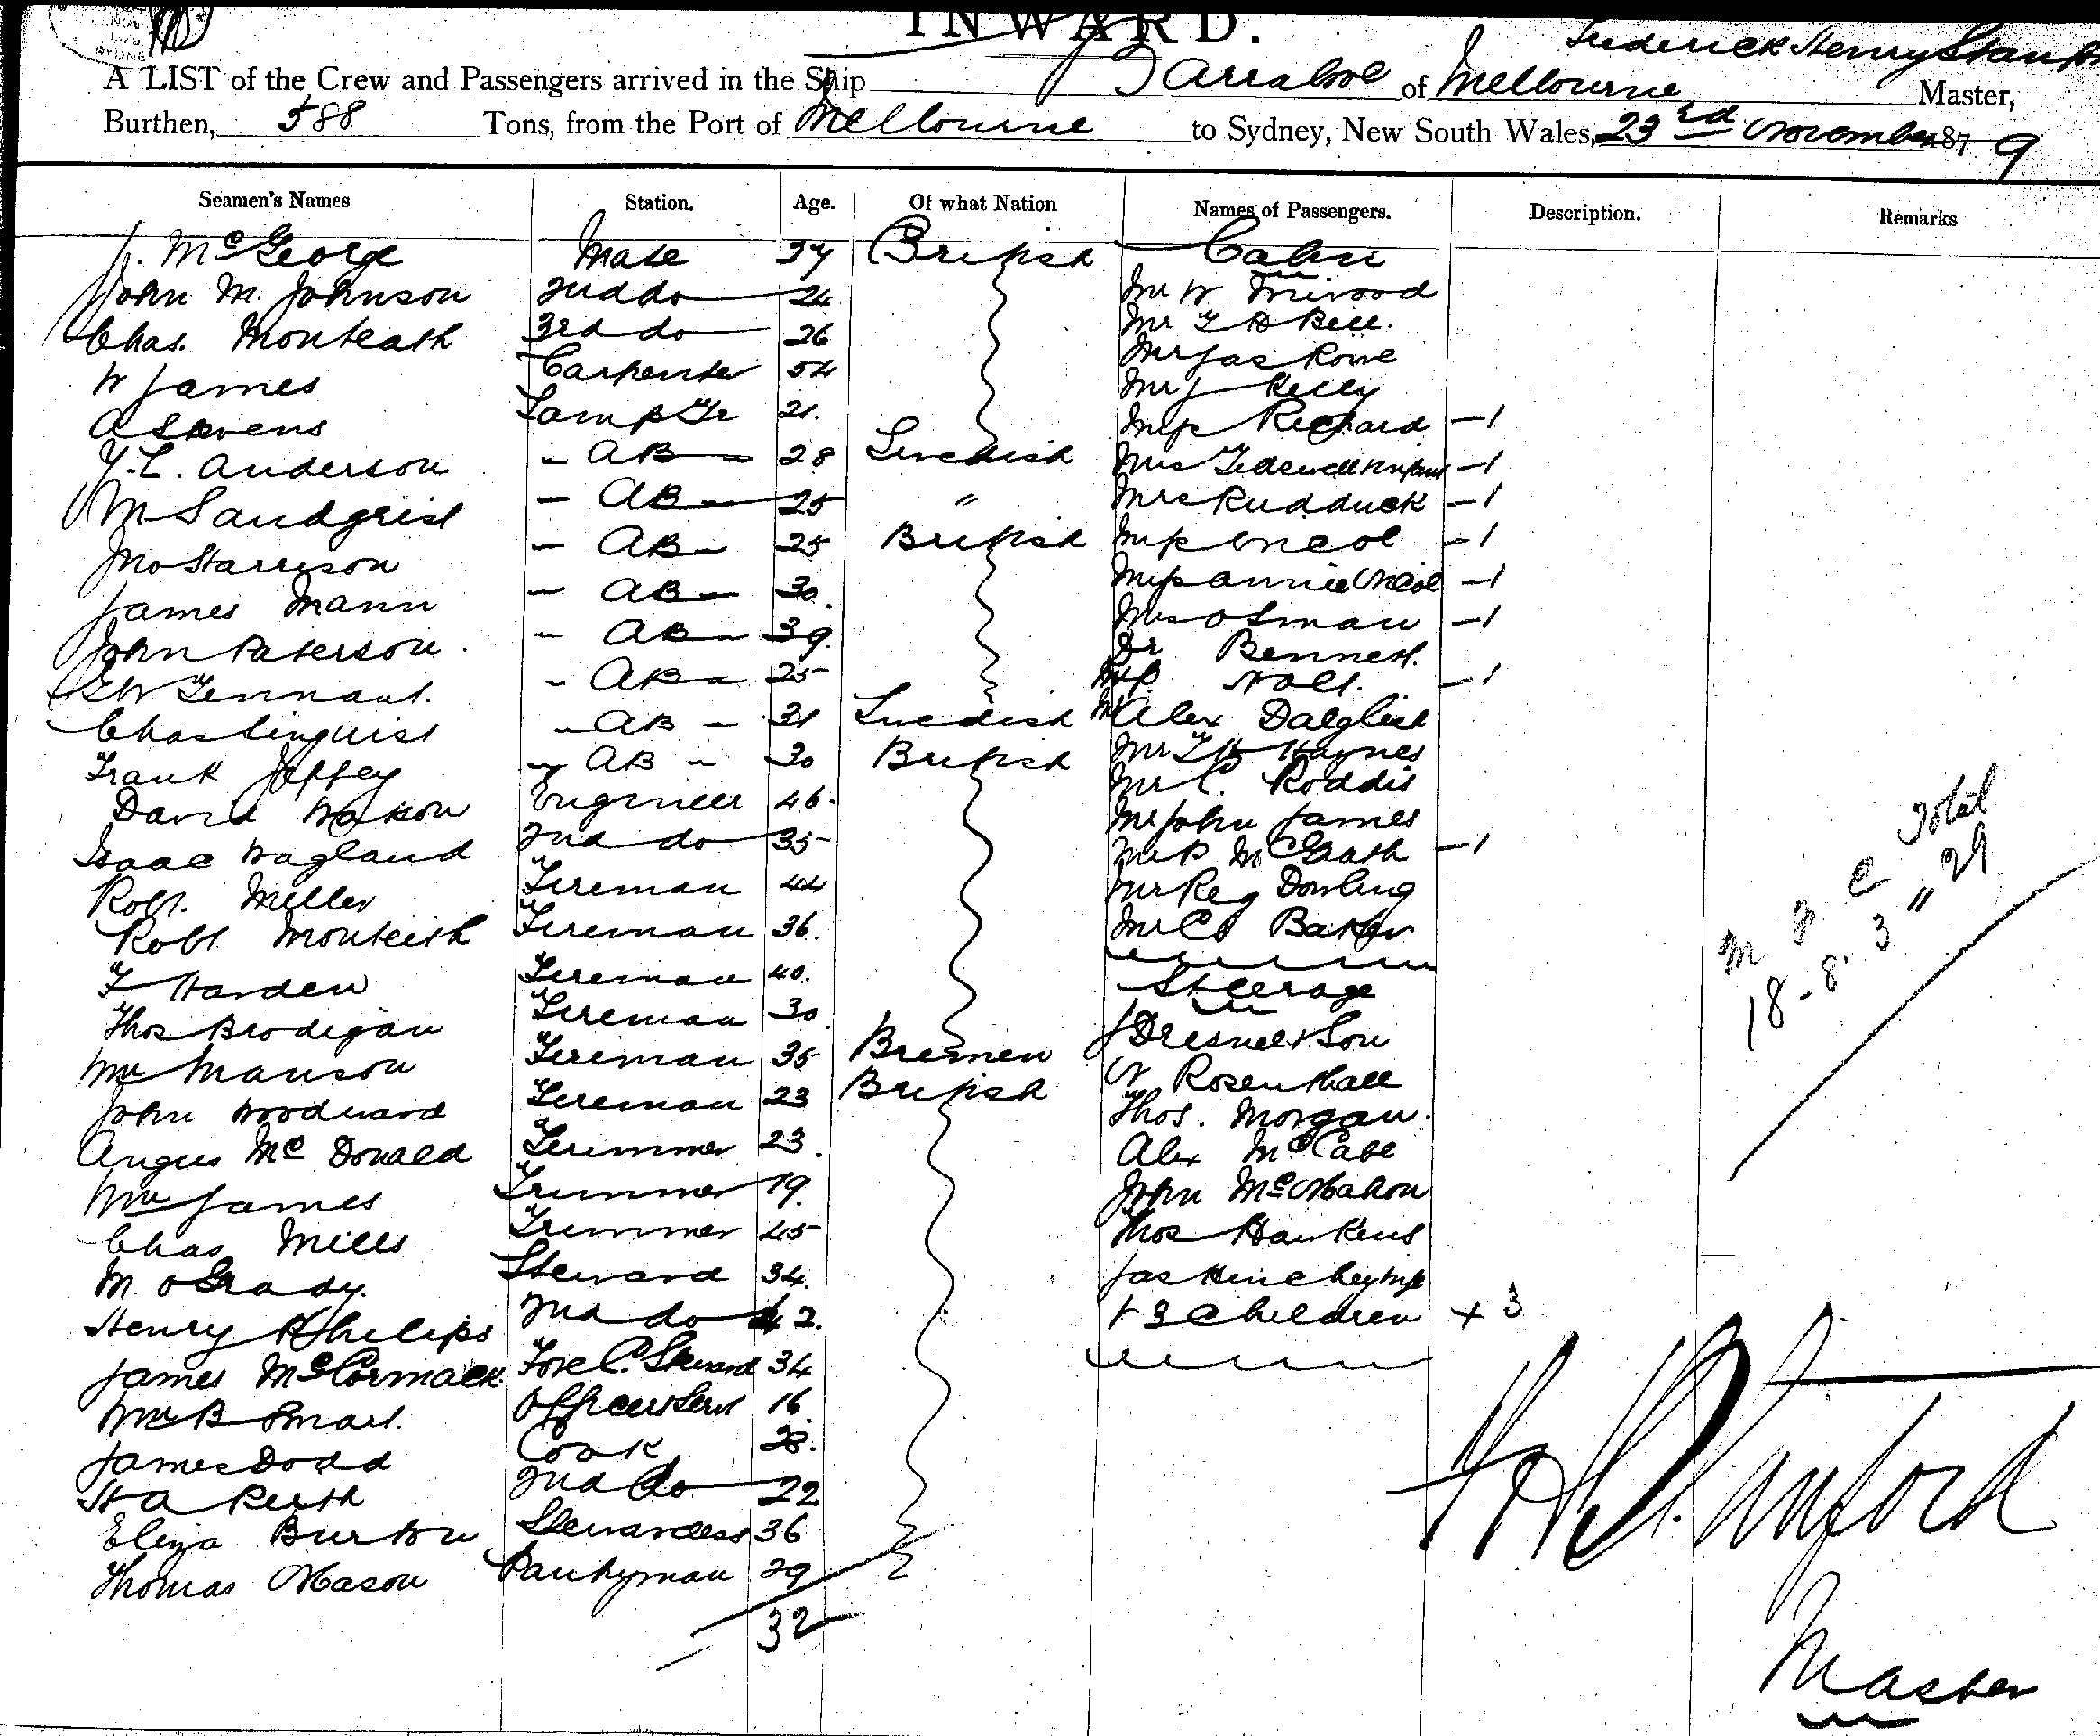 INWARD.
Frederick Henry
A LIST of the Crew and Passengers arrived in the Ship of Melbourne Master,
Burthen, 588 Tons, from the Port of Melbourne to Sydney, New South Wales, 23rd November 1879
Seamen's Names Station. Age. Of what Nation Names of Passengers. Description. Remarks
J. McGeorge Mate 37 British Cabin
John M. Johnson 2nd do 24 Mr W
Chas. Monteath 3rd do 26 Mr Bell.
W James Carpenter 54 Mr Jas Rowe
A Stevens Lamp Tr 21. Mr J Kelly
Miss Richard - 1
Anderson - AB - 28 Swedish Mrs Infant - 1
M Sandqrist - AB - 25 " Mrs Rudduck - 1
Jno Harrison - AB - 25 British Miss - 1
James Mann - AB - 30. Miss Annie - 1
John Paterson. - AB - 39. Mrs Osman - 1
Dr Bennett.
Tennant. - AB - 25 Miss Holt. - 1
Chas Linquist - AB - 31 Swedish Mr Alex Dalglish
Frank Jeffey - AB - 30 British Mr Haynes
Mr C. Roddis
David Watson Engineer 46. Mr John James
Isaac Wagland 2nd do 35 McGrath - 1
Robt. Miller Fireman 44 Mr Reg Dowling
Robt Monteith Fireman 36. Mr Baker
F Harden Fireman 40. Steerage
Thos Brodigan Fireman 30. & Son
Wm Manson Fireman 35 Bremen Rosenthall
John Woodward Fireman 23 British Thos. Morgan.
Angus McDonald Trimmer 23. Alex McCabe
Wm James Trimmer 19. John McMahon
Chas Mills Trimmer 45 Thos Hawkins
M. O'Grady. Steward 34. Jas
Henry Philips 2nd do 42. + 3 Children + 3
James McCormack Fore C. Steward 34
Wm B Smart. Officers Servt 16.
James Dodd Cook 28.
H A Perth 2nd do 22
Eliza Burton Stewardess 36
Thomas Mason Pantryman 29
32
M F C Total
18 - 8. 3 " 29
F H Stanford
Master